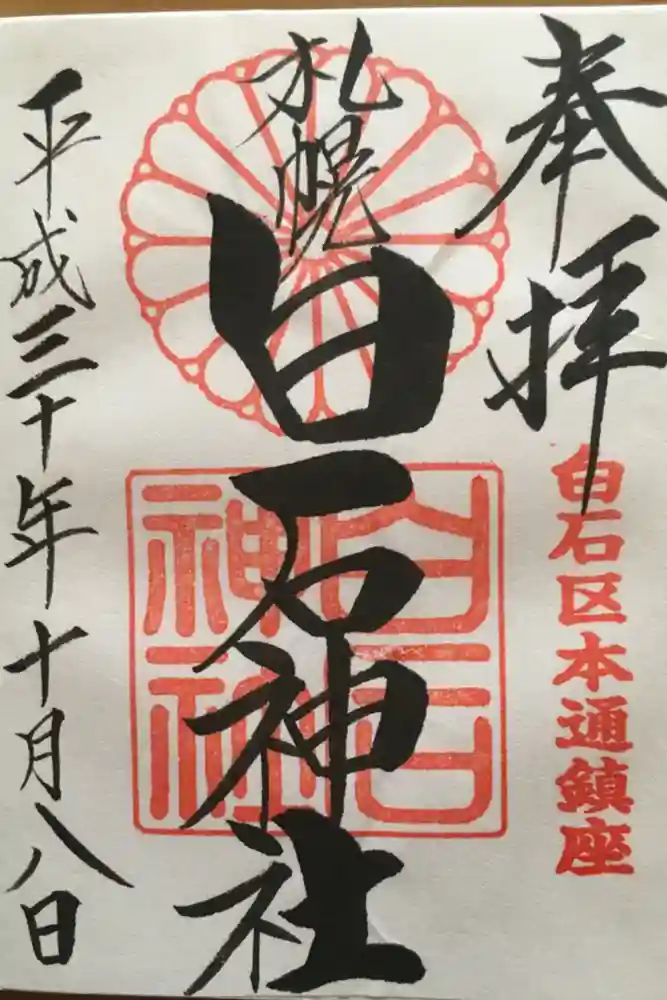 奉拝
白石区本通鎮座
札幌
白石神社
白石
神社
平成三十年十月八日